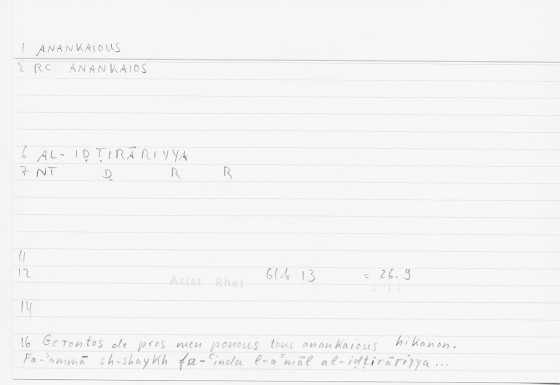 1 ANANKAIOUS
2 RC ANANKAIOS
6 AL-IḌṬIRĀRIYYA
7 NT Ḍ R R
11
12 Arist Rhet 61b 13 = 26.9
14
16 Gerontos de pros men ponous tous anankaious hikanon.
Fa-ʾammā sh-shaykh fa-ʿinda l-aʿmāl al-iḍṭirāriyya...